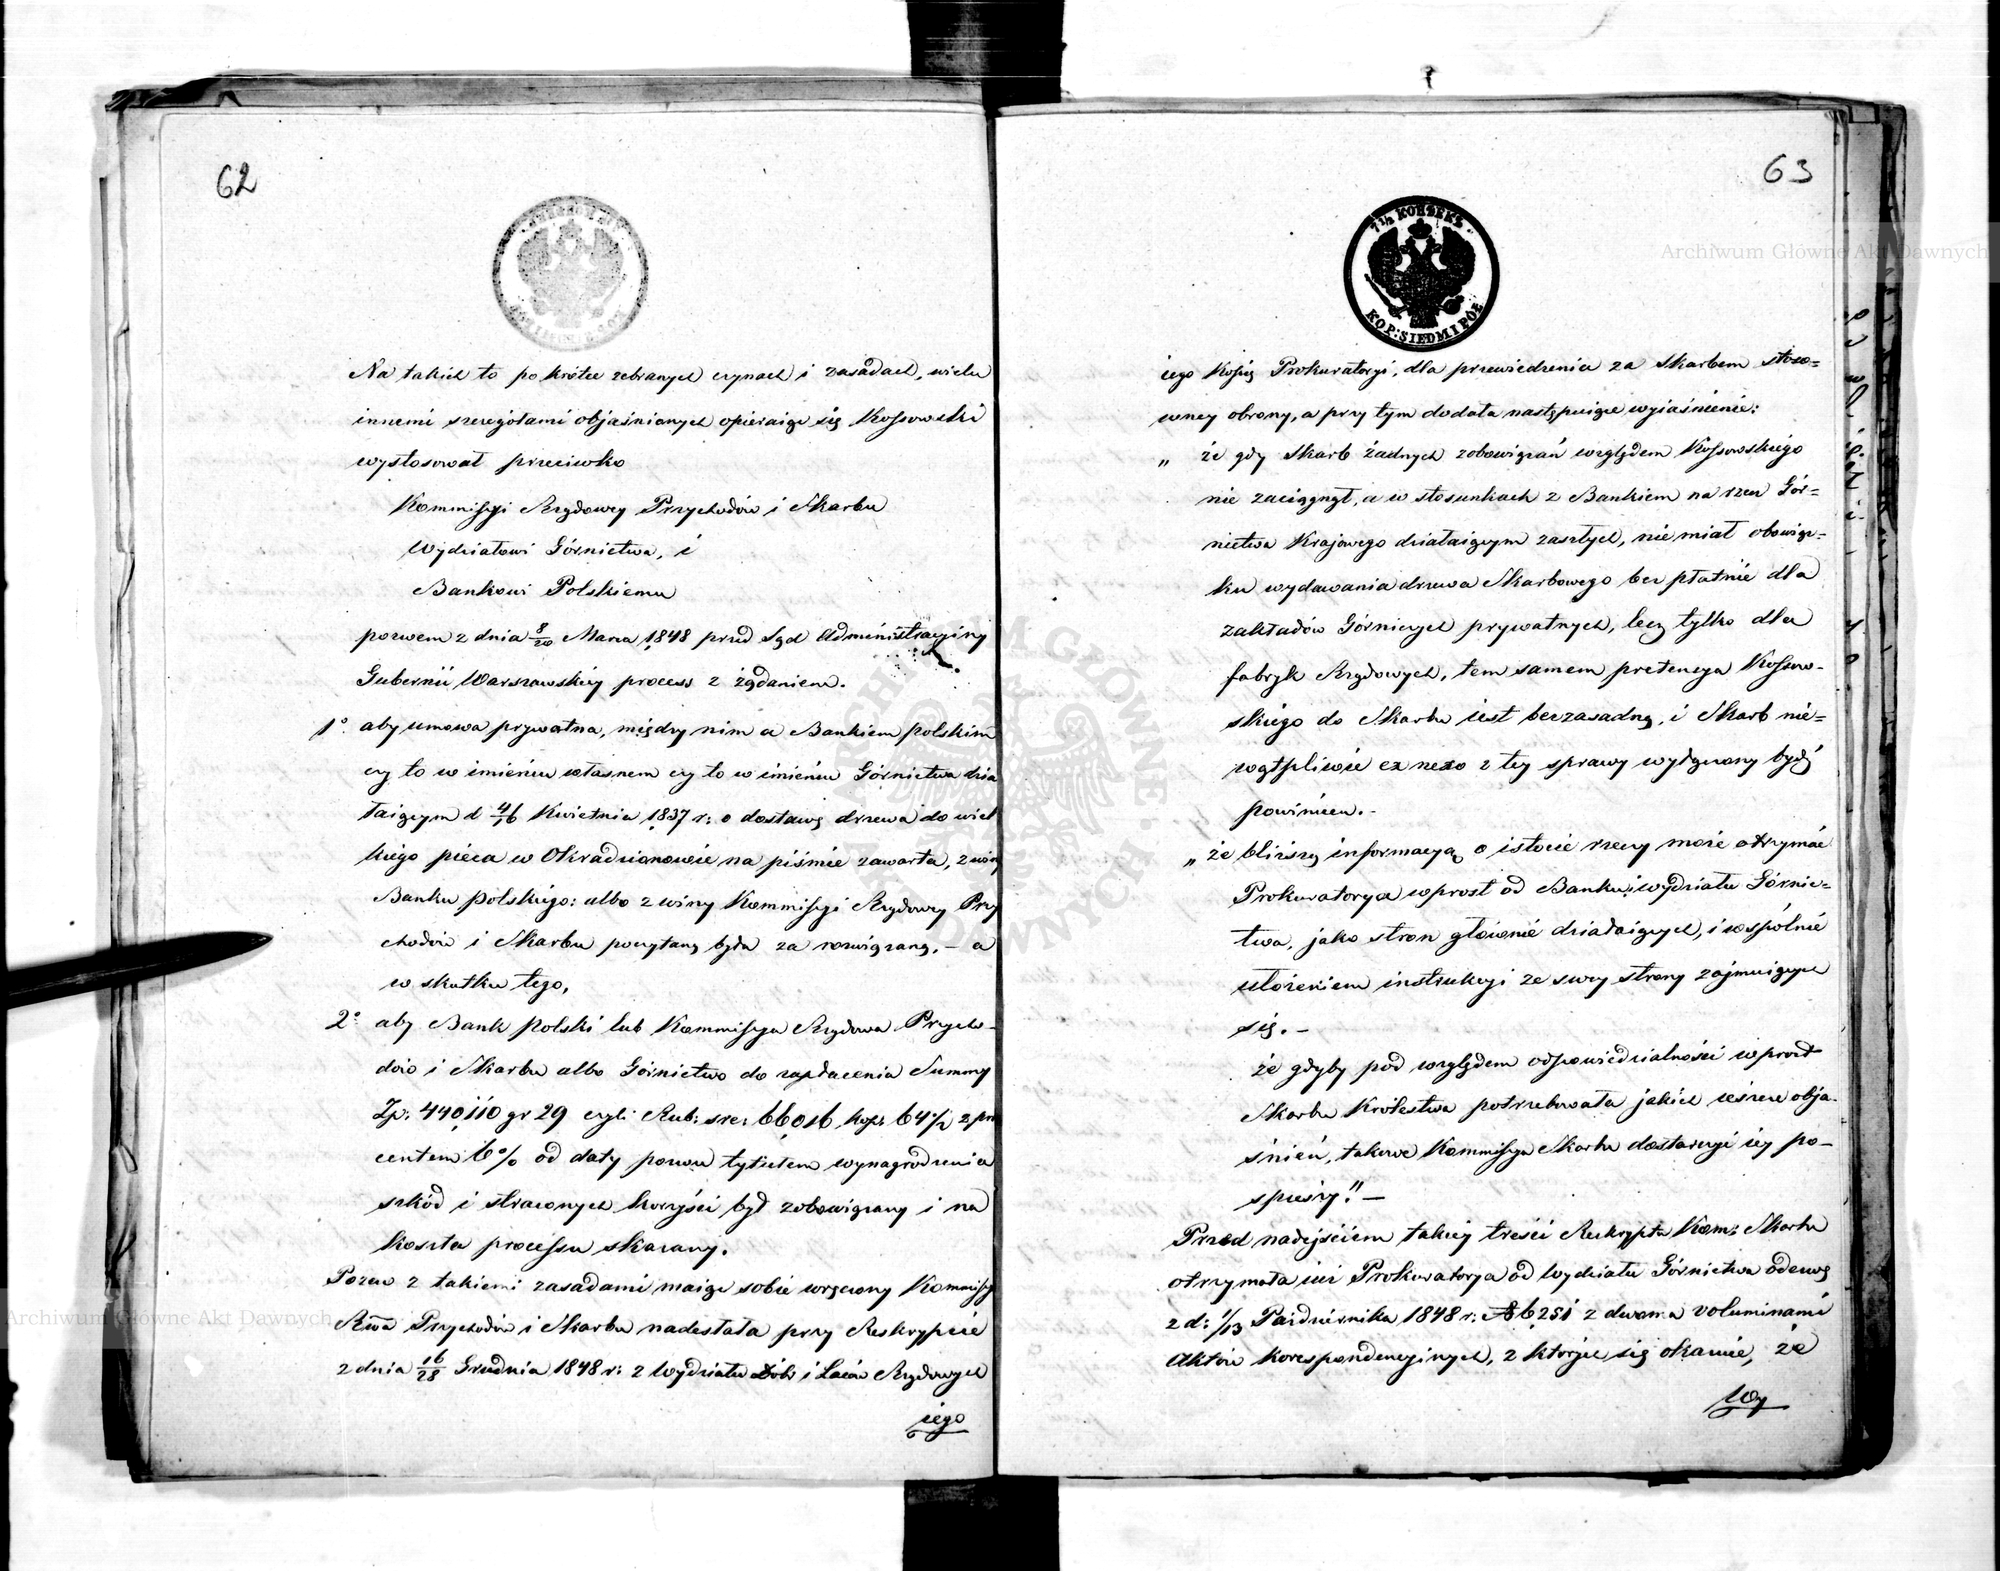 62
Na takich to po krótce zebranych czynach i zasadach, wielu
innemi szczegółami objaśnianych opieraiąc się Kossowski
wystosował przeciwko
Kommissyi Rządowey Przychodów i Skarbu
Wydziałowi Górnictwa, i
Bankowi Polskiemu
pozwem z dnia 8/20 Marca 1848 przed Sąd Administracyiny
Gubernii Warszawskiey process z żądaniem.
1° aby umowa prywatna, między nim a Bankiem polskim
czy to w imieniu własnem czy to w imieniu Górnictwa dzia
łaiącym d 4/16 Kwietnia 1837 r: o dostawę drzewa do wiel
kiego pieca w Okradzionowie na piśmie zawarta, z winy
Banku polskiego: albo z winy Kommissyi Rządowey Przy
chodów i Skarbu poczytaną była za rozwiązaną, – a
w skutku tego,
2° aby Bank polski lub Kommissya Rządowa Przycho-
dów i Skarbu albo Górnictwo do zapłacenia Summy
Zp: 440,110 gr 29 czyli Rub: sre: 66,016 kop: 64½ z pro
centem 6% od daty pozwu tytułem wynagrodzenia
szkód i straconych korzyści był zobowiązany i na
koszta processu skazany.
Pozew z takiemi zasadami maiąc sobie wręczony Kommissya
Rwa Przychodów i Skarbu nadesłała przy Reskrypcie
z dnia 16/28 Grudnia 1848 r: z Wydziału Dóbr i Lasów Rządowych
iego
63
7½ KOP.
KOP: SIEDM I PÓŁ
iego Kopią Prokuratoryi, dla przewiedzenia za Skarbem stoso=
wney obrony, a przy tym dodała następuiące wyiaśnienie:
„ że gdy Skarb żadnych zobowiązań względem Kossowskiego
nie zaciągnął, a w stosunkach z Bankiem na rzecz Gór=
nictwa Krajowego działaiącym zaszłych, nie miał obowiąz=
ku wydawania drzewa Skarbowego bez płatnie dla
zakładów Górniczych prywatnych, lecz tylko dla
fabryk Rządowych, tem samem pretensya Kossow-
skiego do Skarbu iest bezzasadną, i Skarb nie=
wątpliwie ex nexo z tey sprawy wyłączony bydź
powinien.-
„ że bliższą informacyą o istocie rzeczy może otrzymać
Prokuratorya wprost od Banku i wydziału Górnic=
twa, jako stron głównie działaiących, i wspólnie
ułożeniem instrukcyi ze swey strony zajmuiących
się. –
że gdyby pod względem odpowiedzialności wprost
Skarbu Królestwa potrzebowała jakich ieszcze obja-
śnień, takowe Kommissya Skarbu dostarczyć iey po-
spieszy!" –
Przed nadejściem takiey treści Reskryptu Kom: Skarbu
otrzymała iuż Prokuratorya od Wydziału Górnictwa odezwę
z d: 1/13 Października 1848 r: N 6,251 z dwoma voluminami
Aktów korespondencyinych, z których się okazuie, że
Wy
Archiwum Główne Akt Dawnych
Archiwum Główne Akt Dawnych